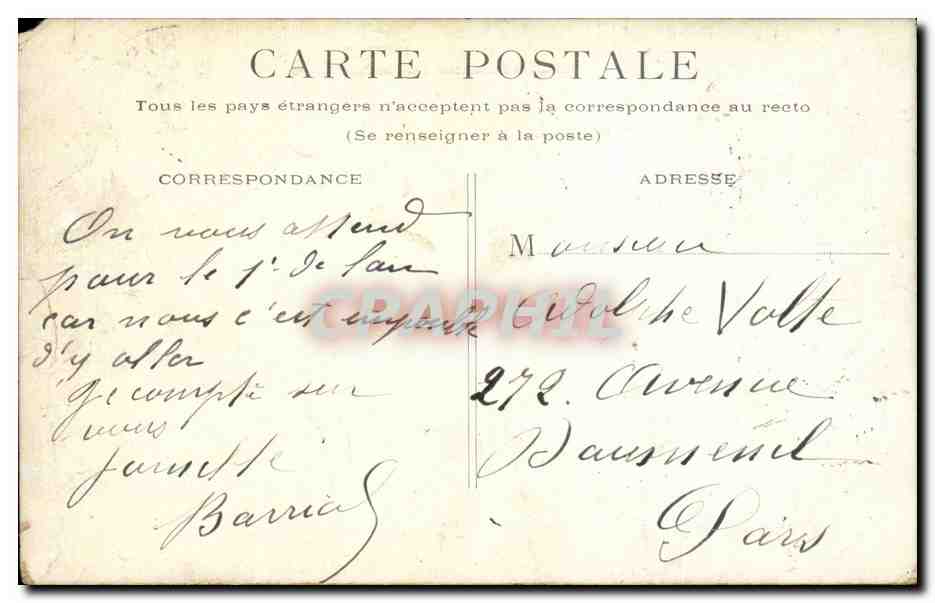 CARTE POSTALE
Tous les pays étrangers n'acceptent pas la correspondance au recto
(Se renseigner à la poste)
CORRESPONDANCE
On vous attend
pour le 1r de l'an
car nous c'est impossible
d'y aller
Je compte sur
vous
famille
Barrial
ADRESSE
Monsieur
Adolphe Volte
272. Avenue
Daumenil
Paris
CRAPHIL